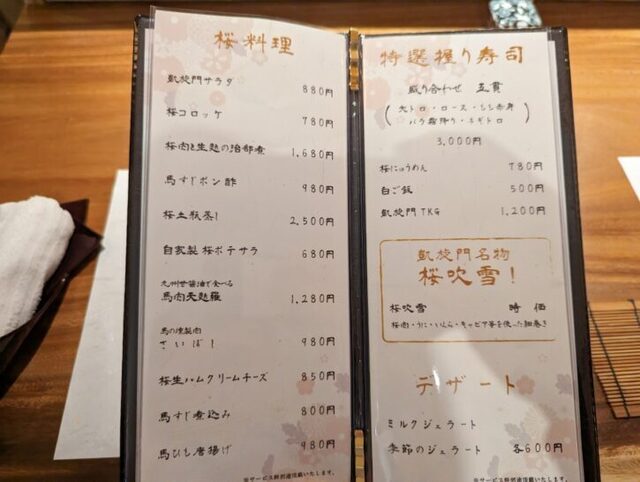 桜料理
凱旋門サラダ 880円
桜コロッケ 780円
桜肉と生麩の治部煮 1,680円
馬すじポン酢 980円
桜土瓶蒸し 2,500円
自家製桜ポテサラ 680円
九州甘醤油で食べる
馬肉天麩羅 1,280円
馬の燻製肉
さいぼし 980円
桜生ハムクリームチーズ 850円
馬すじ煮込み 800円
馬ひも唐揚げ 980円
※サービス料別途頂戴いたします。
特選握り寿司
盛り合わせ 五貫
(大トロ・ロース・シン赤身
バラ霜降り・ネギトロ)
3,000円
桜にゅうめん 780円
白ご飯 500円
凱旋門TKG 1,200円
凱旋門名物
桜吹雪!
桜吹雪 時価
桜肉・うに・いくら・キャビア等を使った細巻き
デザート
ミルクジェラート
季節のジェラート 各600円
※サービス料別途頂戴いたします。